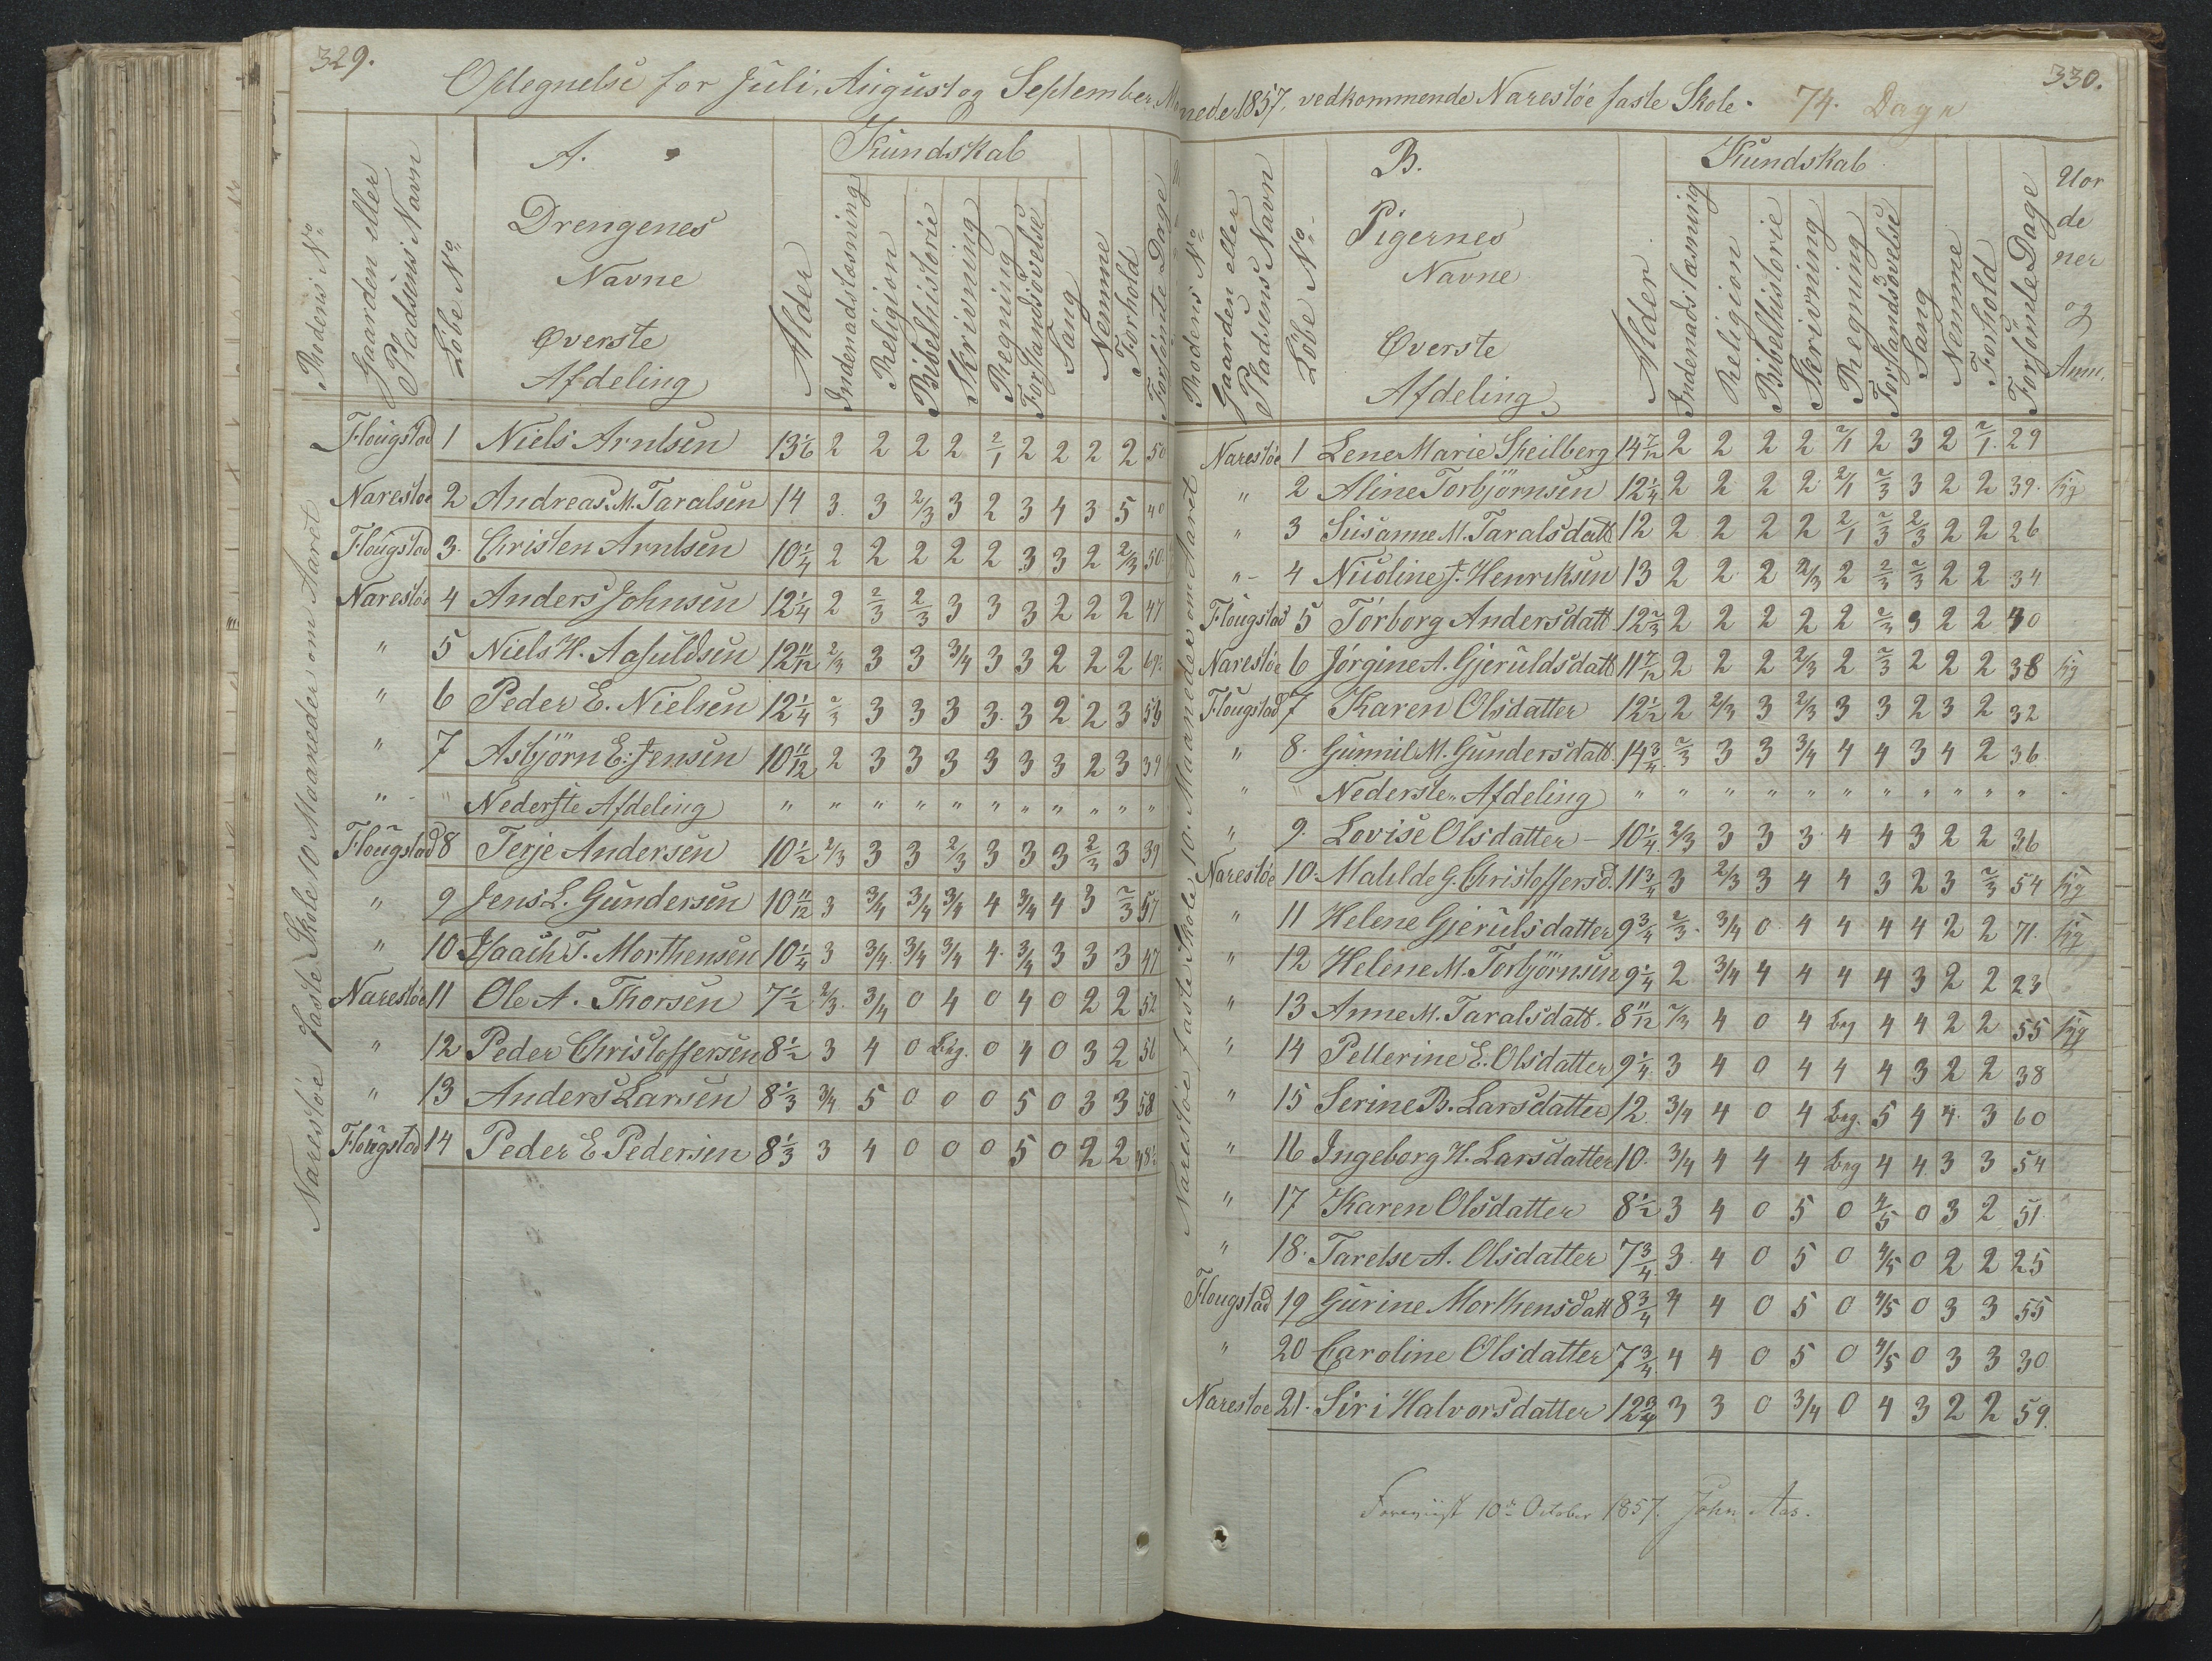 329.
Optegnelse for Juli, August og September
A.
Kundskab
Rodens No
Gaarden eller
Pladsens Navn
Löbe No
Drengenes
Navne
Øverste
Afdeling
Alder
Indenadslæsning
Religion
Bibelhistorie
Skrivning
Regning
Forstandsövelse
Sang
Nemme
Forhold
Forsömte Dage
Narestöe faste Skole 10 Maaneder om Aaret
Flougstad 1 Niels Arntsen 13 1/6 2 2 2 2 2/1 2 2 2 2 50
Narestöe 2 Andreas M. Taralsen 14 3 3 2/3 3 2 3 4 3 5 40
Flougstad 3. Christen Arntsen 10 1/4 2 2 2 2 2 3 3 2 2/3 50
Narestöe 4 Anders Johnsen 12 1/4 2 2/3 2/3 3 3 3 2 2 2 47
" 5 Niels H. Aasuldsen 12 11/12 2/3 3 3 3/4 3 3 2 2 2
" 6 Peder E. Nielsen 12 1/4 2/3 3 3 3 3 3 2 2 3
" 7 Asbjörn E. Jensen 10 11/12 2 3 3 3 3 3 3 2 3 39
" " Nederste Afdeling " " " " " " " " " " "
Flougstad 8 Terje Andersen 10 1/2 2/3 3 3 2/3 3 3 3 2/3 3 39
" 9 Jens L. Gundersen 10 11/12 3 3/4 3/4 3/4 4 3/4 4 3 2/3 57
" 10 Isaach T. Morthensen 10 1/4 3 3/4 3/4 3/4 4 3/4 3 3 3 47
Narestöe 11 Ole A. Thorsen 7 1/2 2/3 3/4 0 4 0 4 0 2 2 52
" 12 Peder Christoffersen 8 1/2 3 4 0 Beg. 0 4 0 3 2 56
" 13 Anders Larsen 8 1/3 3/4 5 0 0 0 5 0 3 3 58
Flougstad 14 Peder E. Pedersen 8 1/3 3 4 0 0 0 5 0 2 2
330.
nede 1857, vedkommende Narestöe faste Skole. 74. Dage
B.
Kundskab
Rodens No
Gaarden eller
Pladsens Navn
Löbe No
Pigernes
Navne
Øverste
Afdeling
Alder
Indenadslæsning
Religion
Bibelhistorie
Skrivning
Regning
Forstandsövelse
Sang
Nemme
Forhold
Forsömte Dage
Uor
de
ner
og
Anm.
Narestöe faste Skole 10 Maaneder om Aaret
Narestöe 1 Lene Marie Skeilberg 14 7/12 2 2 2 2 2/1 2 3 2 2/1 29
" 2 Aline Torbjörnsen 12 1/4 2 2 2 2 2/1 2/3 3 2 2 39. syg
" 3 Susanne M. Taralsdatt 12 2 2 2 2 2/1 2/3 2/3 2 2 26
" 4 Nicoline J. Henriksen 13 2 2 2 2/3 2 2/3 2/3 2 2 34
Flougstad 5 Torborg Andersdatt 12 2/3 2 2 2 2 2 2/3 3 2 2 40
Narestöe 6 Jörgine A. Gjeruldsdatt 11 7/12 2 2 2 2/3 2 2/3 2 2 2 38 syg
Flougstad 7 Karen Olsdatter 12 1/2 2 2/3 3 2/3 3 3 2 3 2 32
" 8. Gunnil M. Gundersdatt 14 3/4 2/3 3 3 3/4 4 4 3 4 2 36
" " Nederste Afdeling " " " " " " " " " " "
" 9. Lovise Olsdatter 10 1/4 2/3 3 3 3 4 4 3 2 2 36
Narestöe 10. Mahlde G. Christoffersd. 11 3/4 3 2/3 3 4 4 3 2 3 2/3 54 syg
" 11 Helene Gjerulsdatter 9 3/4 2/3 3/4 0 4 4 4 4 2 2 71 syg
" 12 Helene M. Torbjörnsen 9 1/4 2 3/4 4 4 4 4 3 2 2 23
" 13 Anne M. Taralsdatt. 8 11/12 2/3 4 0 4 Beg 4 4 2 2 55 syg
" 14 Pellerine E. Olsdatter 9 1/4 3 4 0 4 4 4 3 2 2 38
" 15 Serine B. Larsdatter 12 3/4 4 0 4 Beg. 5 4 4 3 60
" 16 Ingeborg H. Larsdatter 10 3/4 4 4 4 Beg 4 4 3 3 54
" 17 Karen Olsdatter 8 1/2 3 4 0 5 0 4/5 0 3 2 51
" 18. Tarelse A. Olsdatter 7 3/4 3 4 0 5 0 4/5 0 2 2 25
Flougstad 19 Gurine Morthensdatt 8 3/4 4 4 0 5 0 4/5 0 3 3 55
" 20 Caroline Olsdatter 7 3/4 4 4 0 5 0 4/5 0 3 3 30
Narestöe 21. Siri Halvorsdatter 12 3/4 3 3 0 3/4 0 4 3 2 2 59.
Foreviist 10de October 1857. John Aas.